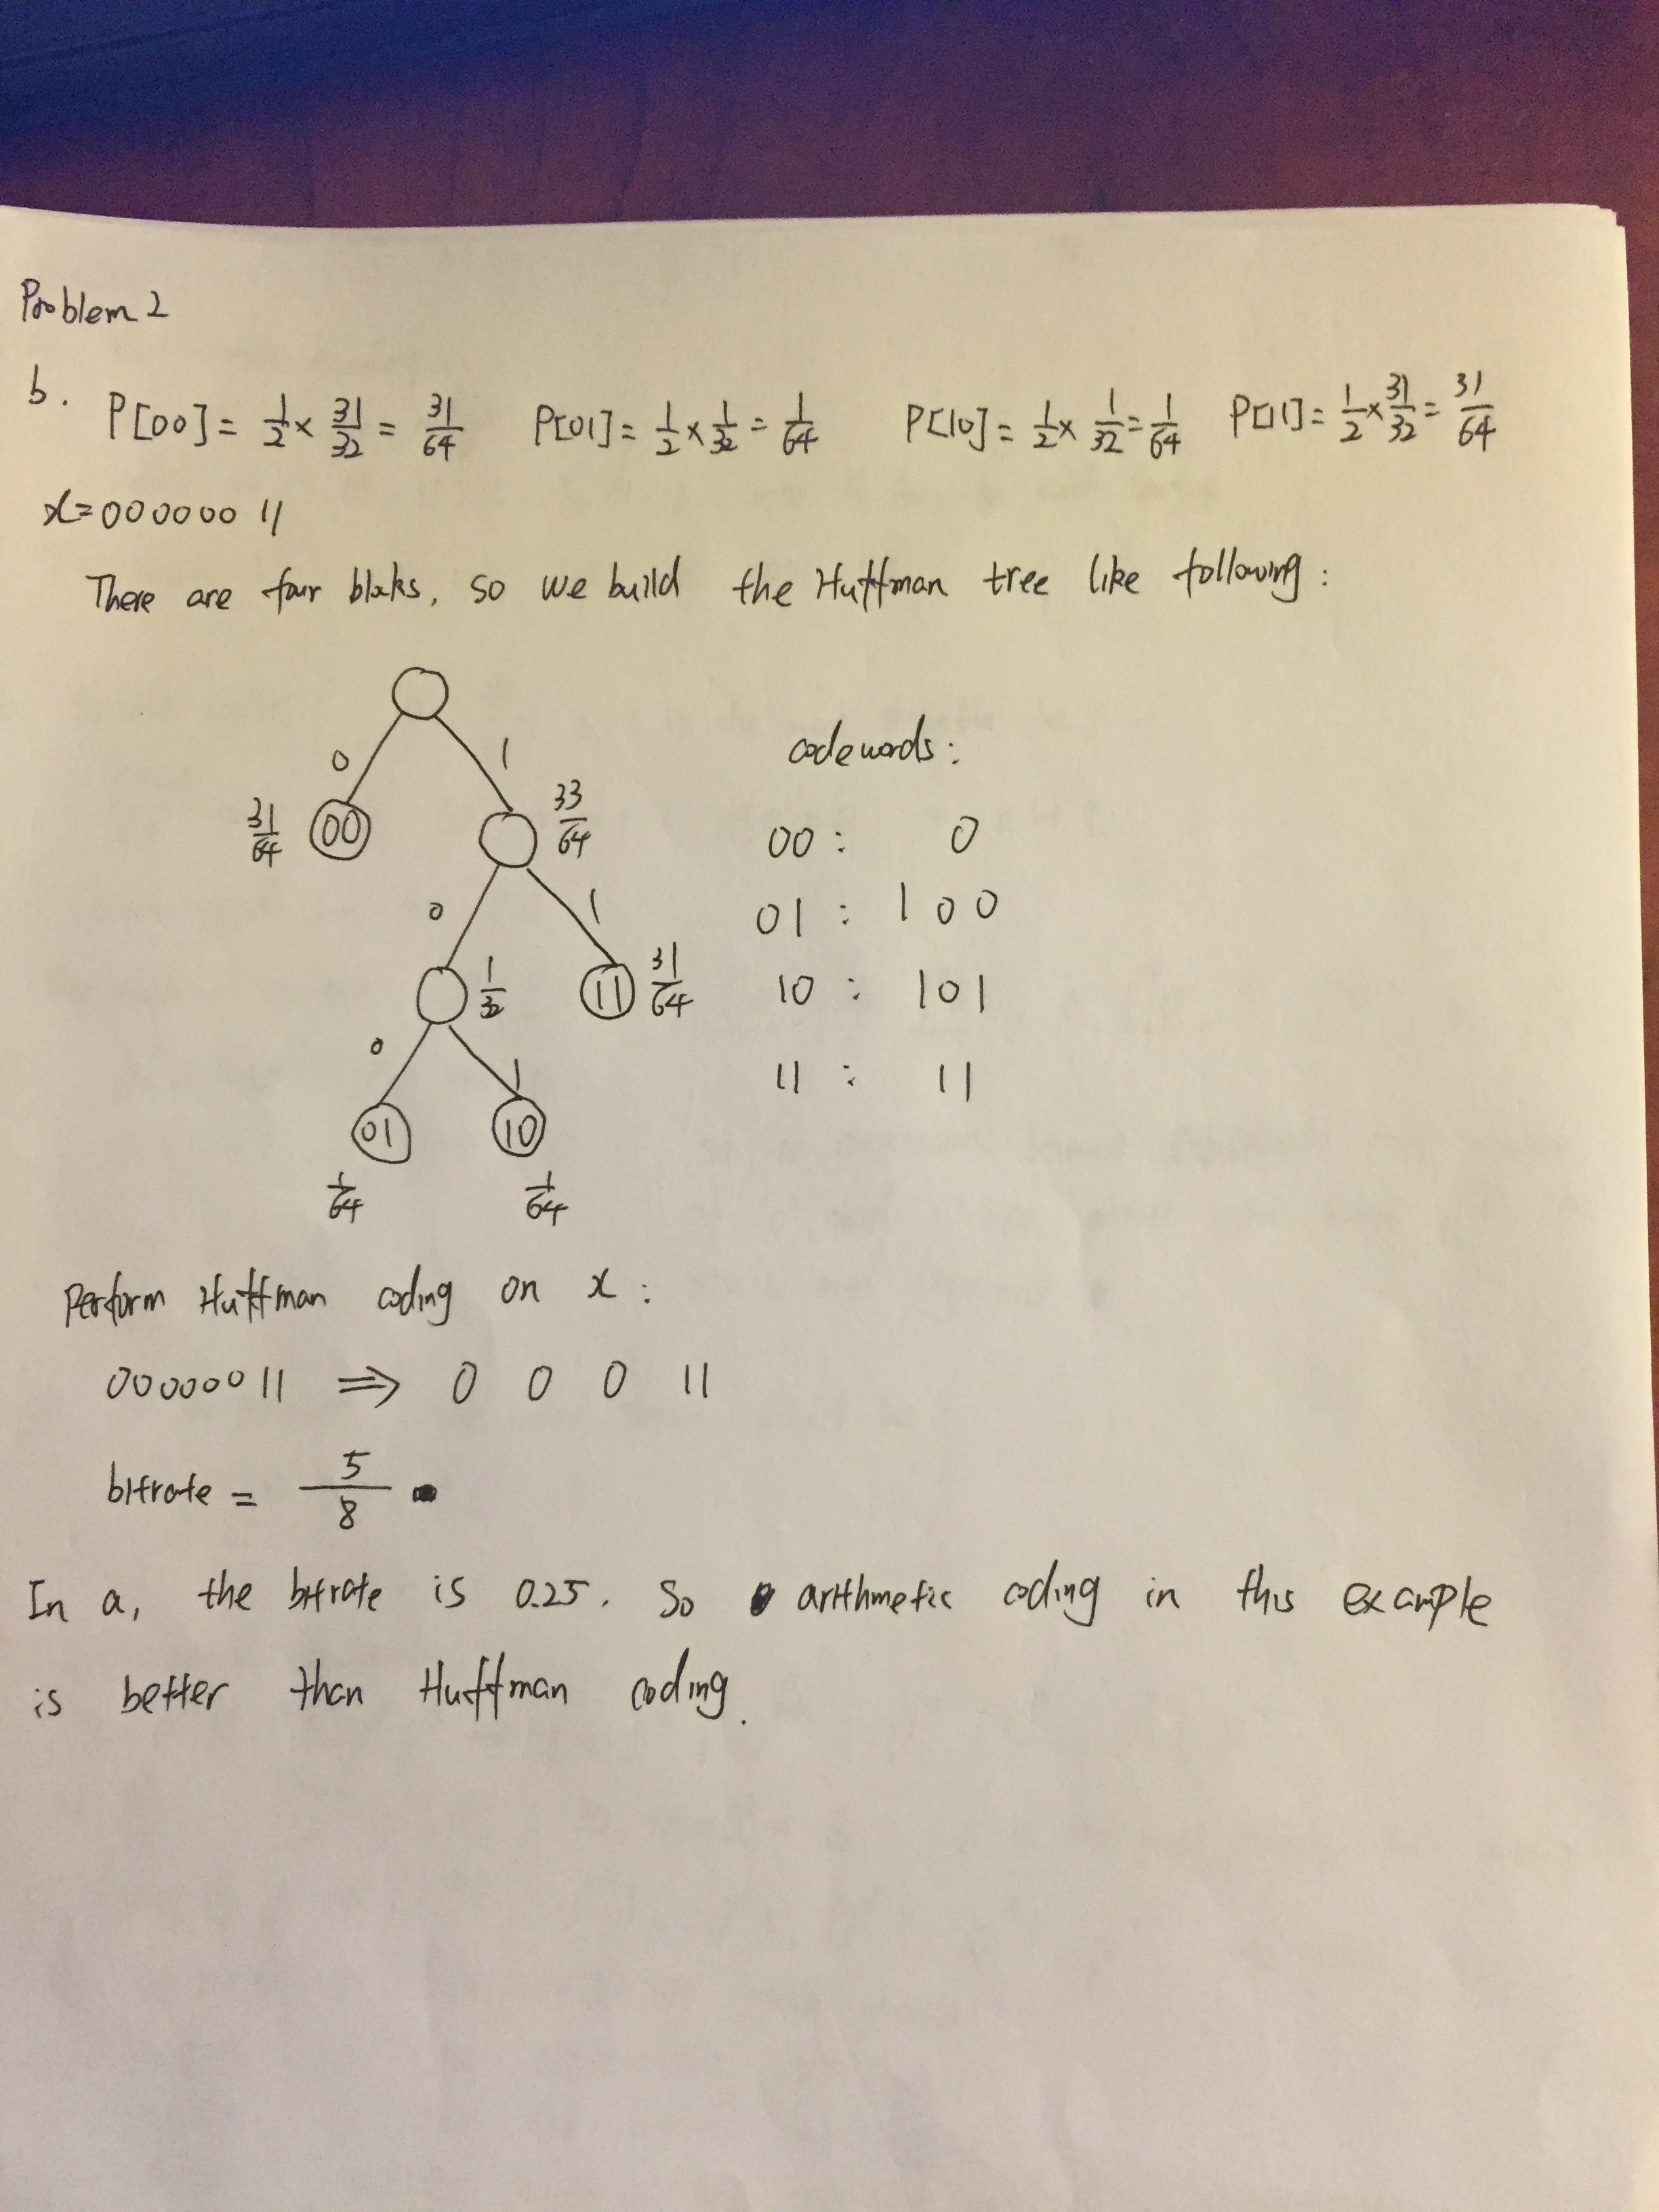 Problem 2
b. P[00] = 1/2 × 31/32 = 31/64 P[01] = 1/2 × 1/32 = 1/64 P[10] = 1/2 × 1/32 = 1/64 P[11] = 1/2 × 31/32 = 31/64
x=000000 11
There are four bloks, so we build the Huffman tree like following:
0 1
codewords:
31/64 00 33/64
00 : 0
0 1
01 : 100
1/32 11 31/64
10 : 101
0 1
11 : 11
01 10
1/64 1/64
Perform Huffman coding on x :
000000 11 ⇒ 0 0 0 11
bitrate = 5/8
In a, the bitrate is 0.25. So arithmetic coding in this example
is better than Huffman coding.